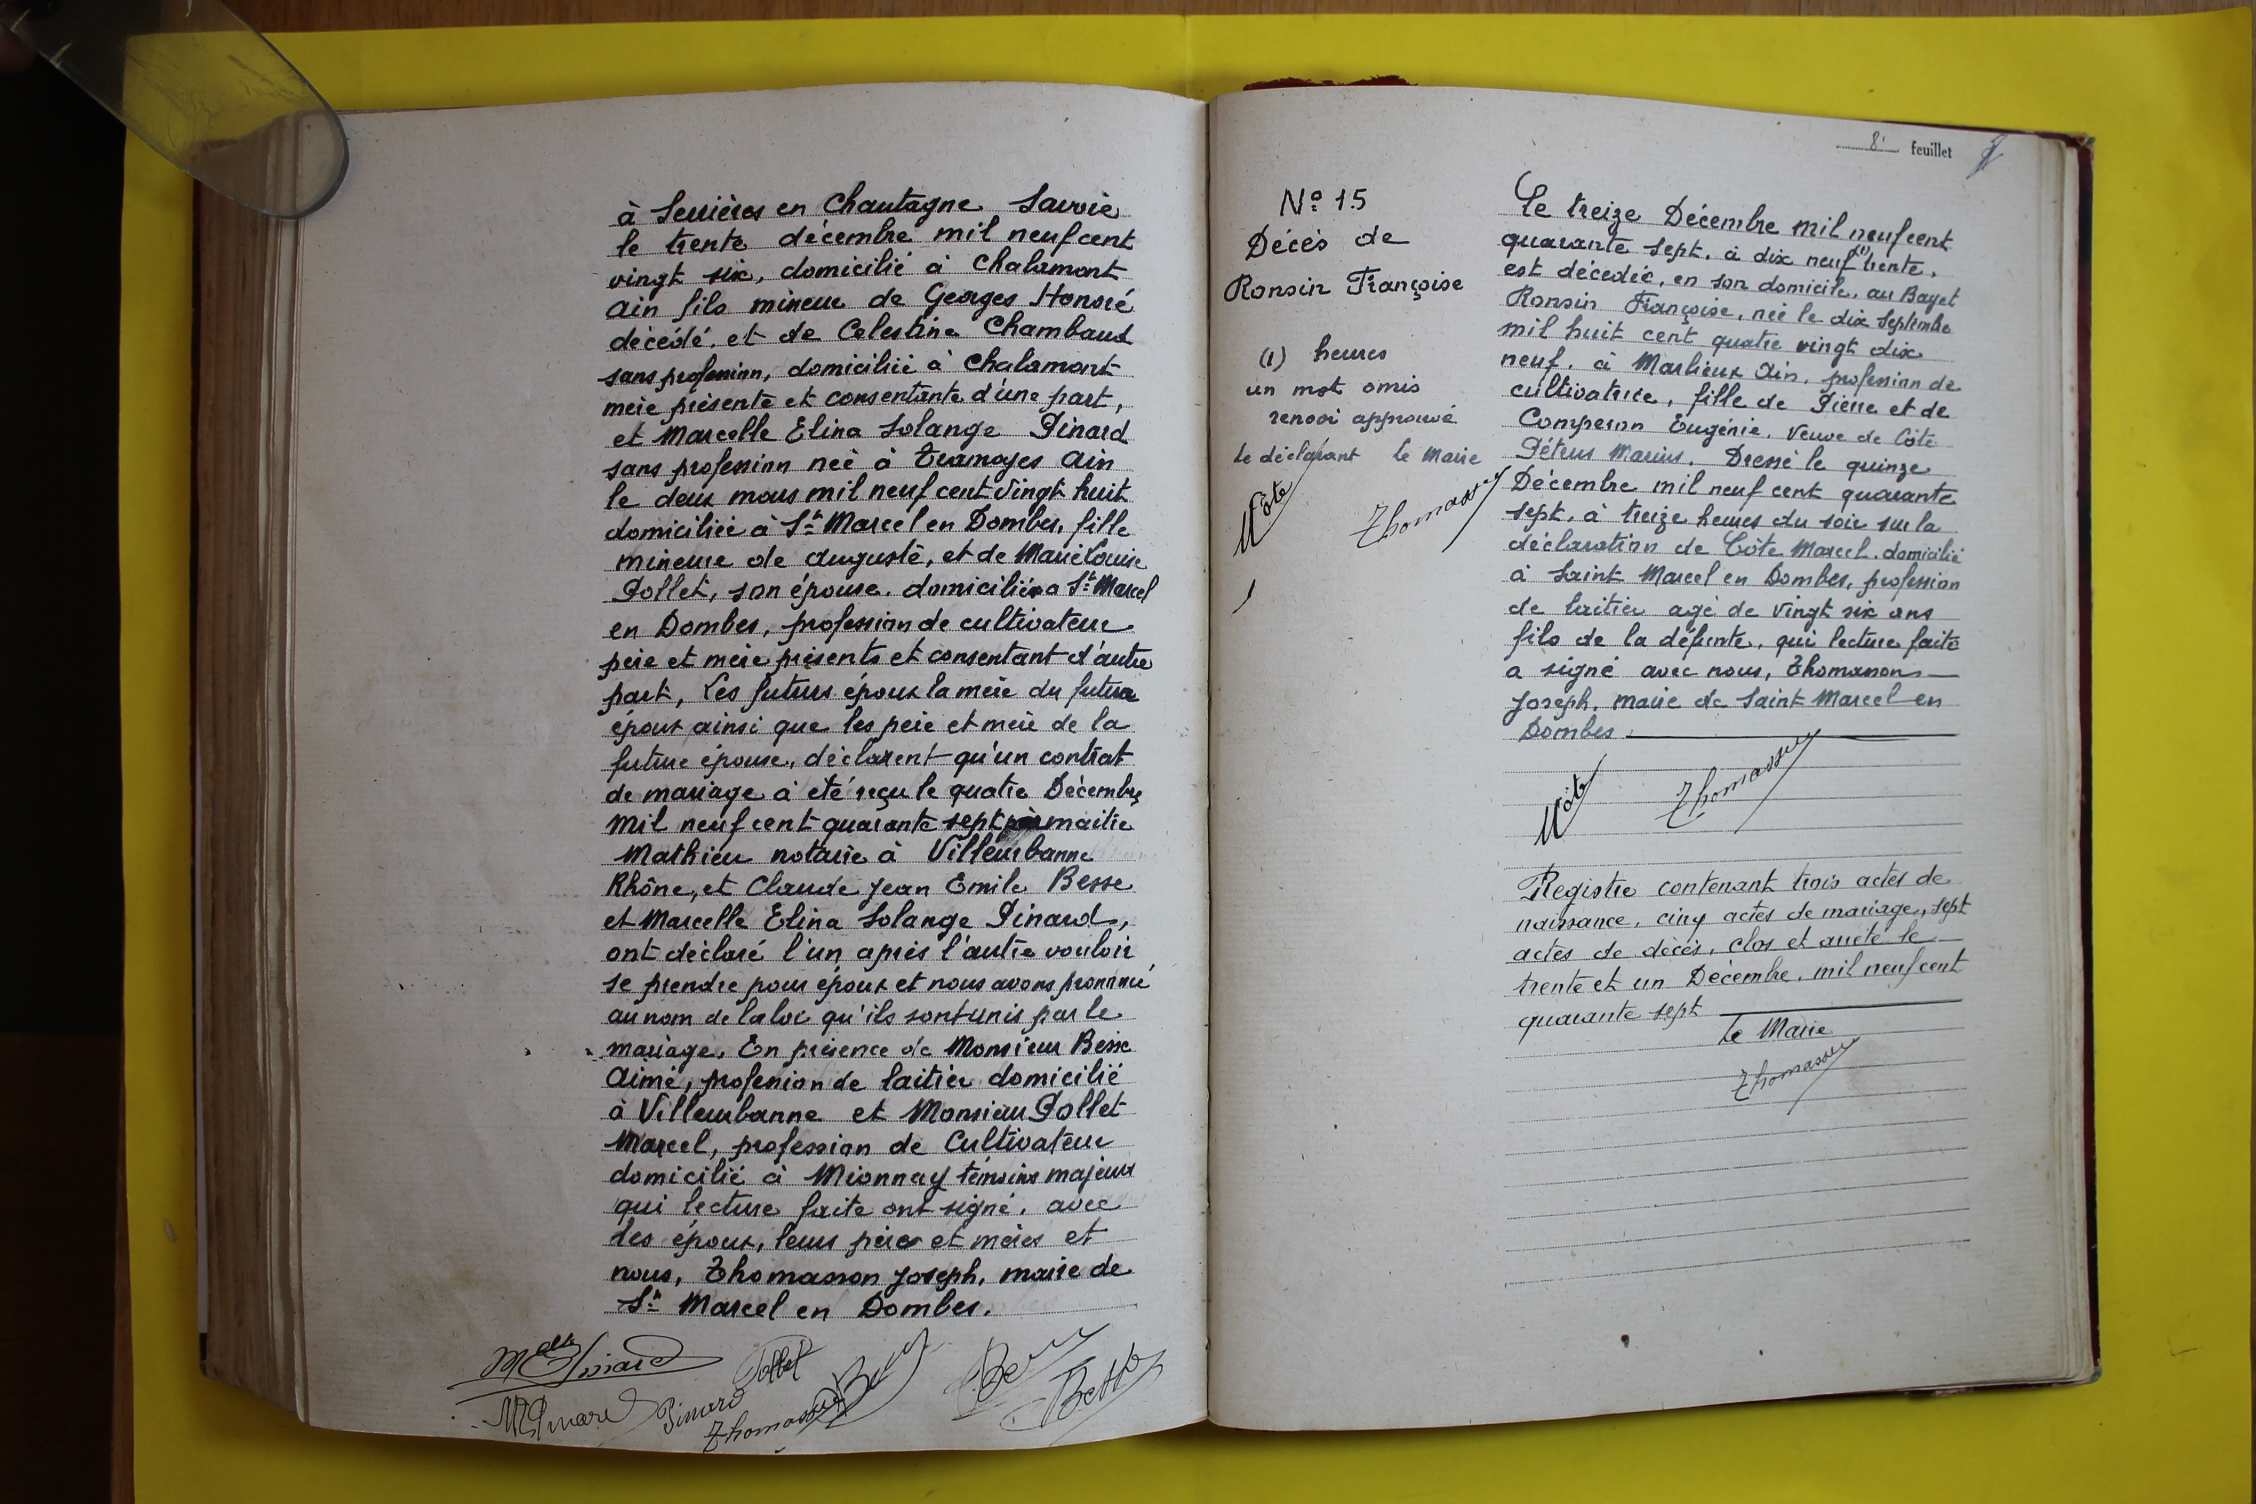 à Serrières en Chautagne Savoie
le trente décembre mil neuf cent
vingt six, domicilié à Chalamont
Ain fils mineur de Georges Honoré
décédé, et de Celestine Chambaud
sans profession, domiciliée à Chalamont
mère présente et consentante d'une part,
et Marcelle Elina Solange Pinard
sans profession neé à Tramoyes Ain
le deux mars mil neuf cent vingt huit
domiciliée à St Marcel en Dombes, fille
mineure de Auguste, et de Marie Louise
Pollet, son épouse. domiciliés a St Marcel
en Dombes, profession de cultivateur
père et mère présents et consentant d'autre
part, Les futurs époux la mère du futur
époux ainsi que les père et mère de la
future épouse, déclarent qu'un contrat
de mariage à été reçu le quatre Décembre
mil neuf cent quarante sept par maitre
Mathieu notaire à Villeurbanne
Rhône, et Claude Jean Emile Besse
et Marcelle Elina Solange Pinard,
ont déclaré l'un après l'autre vouloir
se prendre pour époux et nous avons prononcé
au nom de la loi qu'ils sont unis par le
mariage. En présence de Monsieur Besse
Aimé, profession de laitier domicilié
à Villeurbanne et Monsieur Pollet
Marcel, profession de Cultivateur
domicilié à Mionnay témoins majeurs
qui lecture faite ont signé, avec
les époux, leurs pères et mères et
nous, Thomasson Joseph, maire de
St Marcel en Dombes.
Melle Pinard Pollet
Pinard Pinard Thomasson Besse
8e feuillet
No 15
Décès de
Ronsin Françoise
(1) heures
un mot omis
renvoi approuvé
Le déclarant Le Maire
Côte Thomasson
Le treize Décembre mil neuf cent
quarante sept, à dix neuf (1) trente,
est décedée, en son domicile, au Bayet
Ronsin Françoise, née le dix septembre
mil huit cent quatre vingt dix
neuf, à Marlieux Ain, profession de
cultivatrice, fille de Pierre et de
Comperon Eugénie, Veuve de Côte
Pétrus Marius. Dressé le quinze
Décembre mil neuf cent quarante
sept, à treize heures du soir sur la
déclaration de Côte Marcel, domicilié
à Saint Marcel en Dombes, profession
de laitier agé de vingt six ans
fils de la défunte, qui lecture faite
a signé avec nous, Thomasson
Joseph, maire de Saint Marcel en
Dombes.
Côte Thomasson
Registre contenant trois actes de
naissance, cinq actes de mariage, sept
actes de décès, clos et arrêté le
trente et un Décembre, mil neuf cent
quarante sept
Le Maire
Thomasson